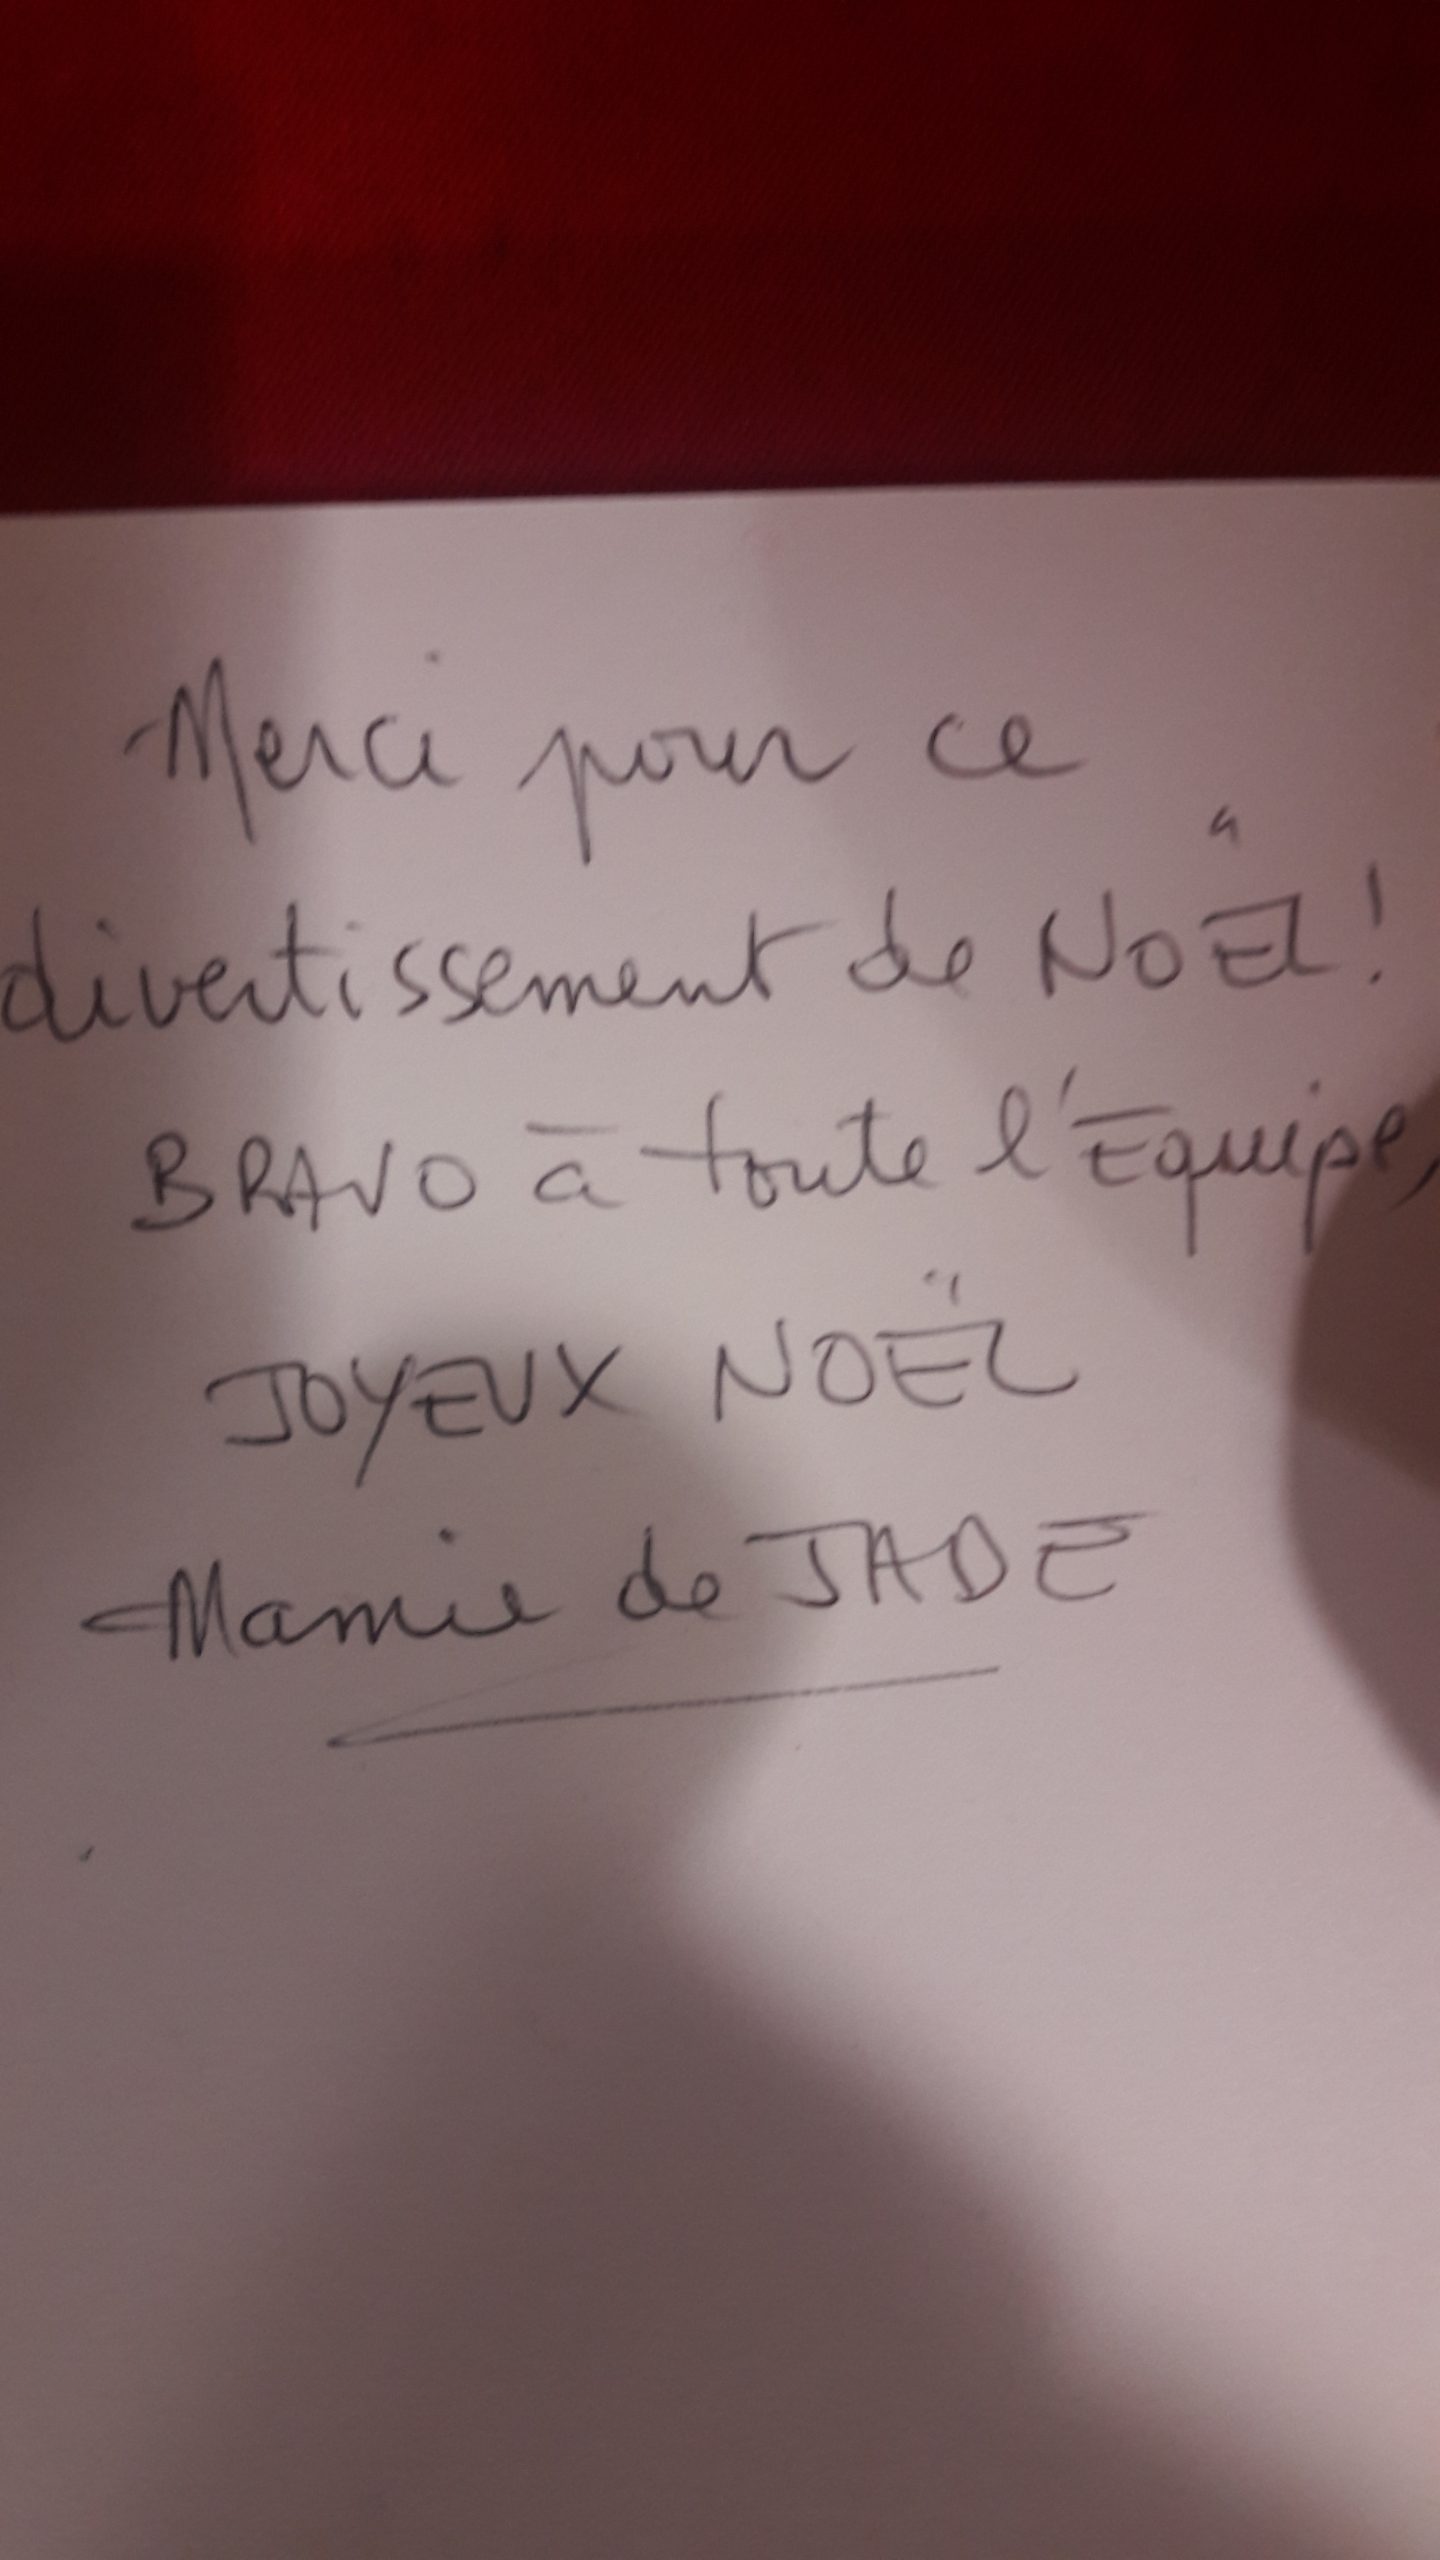 Merci pour ce
divertissement de NOËL !
BRAVO à toute l'Equipe,
JOYEUX NOËL
Mamie de JADE